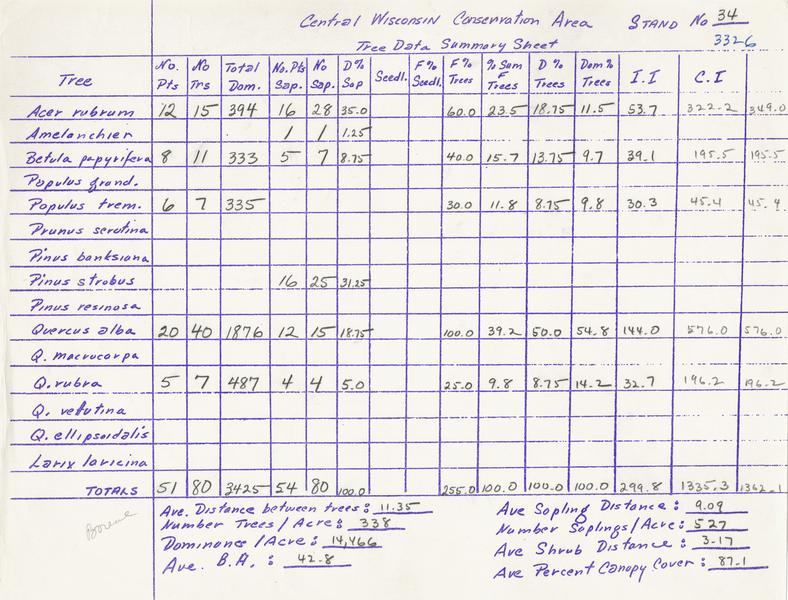 Central Wisconsin Conservation Area STAND No 34
Tree Data Summary Sheet 3326
Tree No. Pts No Trs Total Dom. No. Pts Sap. No Sap. D% Sap Seedl. F% Seedl. F% Trees % Sum F Trees D% Trees Dom% Trees I.I C.I
Acer rubrum 12 15 394 16 28 35.0 60.0 23.5 18.75 11.5 53.7 322.2 349.0
Amelanchier 1 1 1.25
Betula papyrifera 8 11 333 5 7 8.75 40.0 15.7 13.75 9.7 39.1 195.5 195.5
Populus grand.
Populus trem. 6 7 335 30.0 11.8 8.75 9.8 30.3 45.4 45.4
Prunus serotina
Pinus banksiana
Pinus strobus 16 25 31.25
Pinus resinosa
Quercus alba 20 40 1876 12 15 18.75 100.0 39.2 50.0 54.8 144.0 576.0 576.0
Q. macrocarpa
Q. rubra 5 7 487 4 4 5.0 25.0 9.8 8.75 14.2 32.7 196.2 196.2
Q. velutina
Q. ellipsoidalis
Larix laricina
TOTALS 51 80 3425 54 80 100.0 255.0 100.0 100.0 100.0 299.8 1335.3 1362.1
Ave. Distance between trees: 11.35 Ave Sapling Distance: 9.09
Number Trees/Acre: 338 Number Saplings/Acre: 527
Dominance/Acre: 14,466 Ave Shrub Distance: 3.17
Ave. B.A.: 42.8 Ave Percent Canopy Cover: 87.1